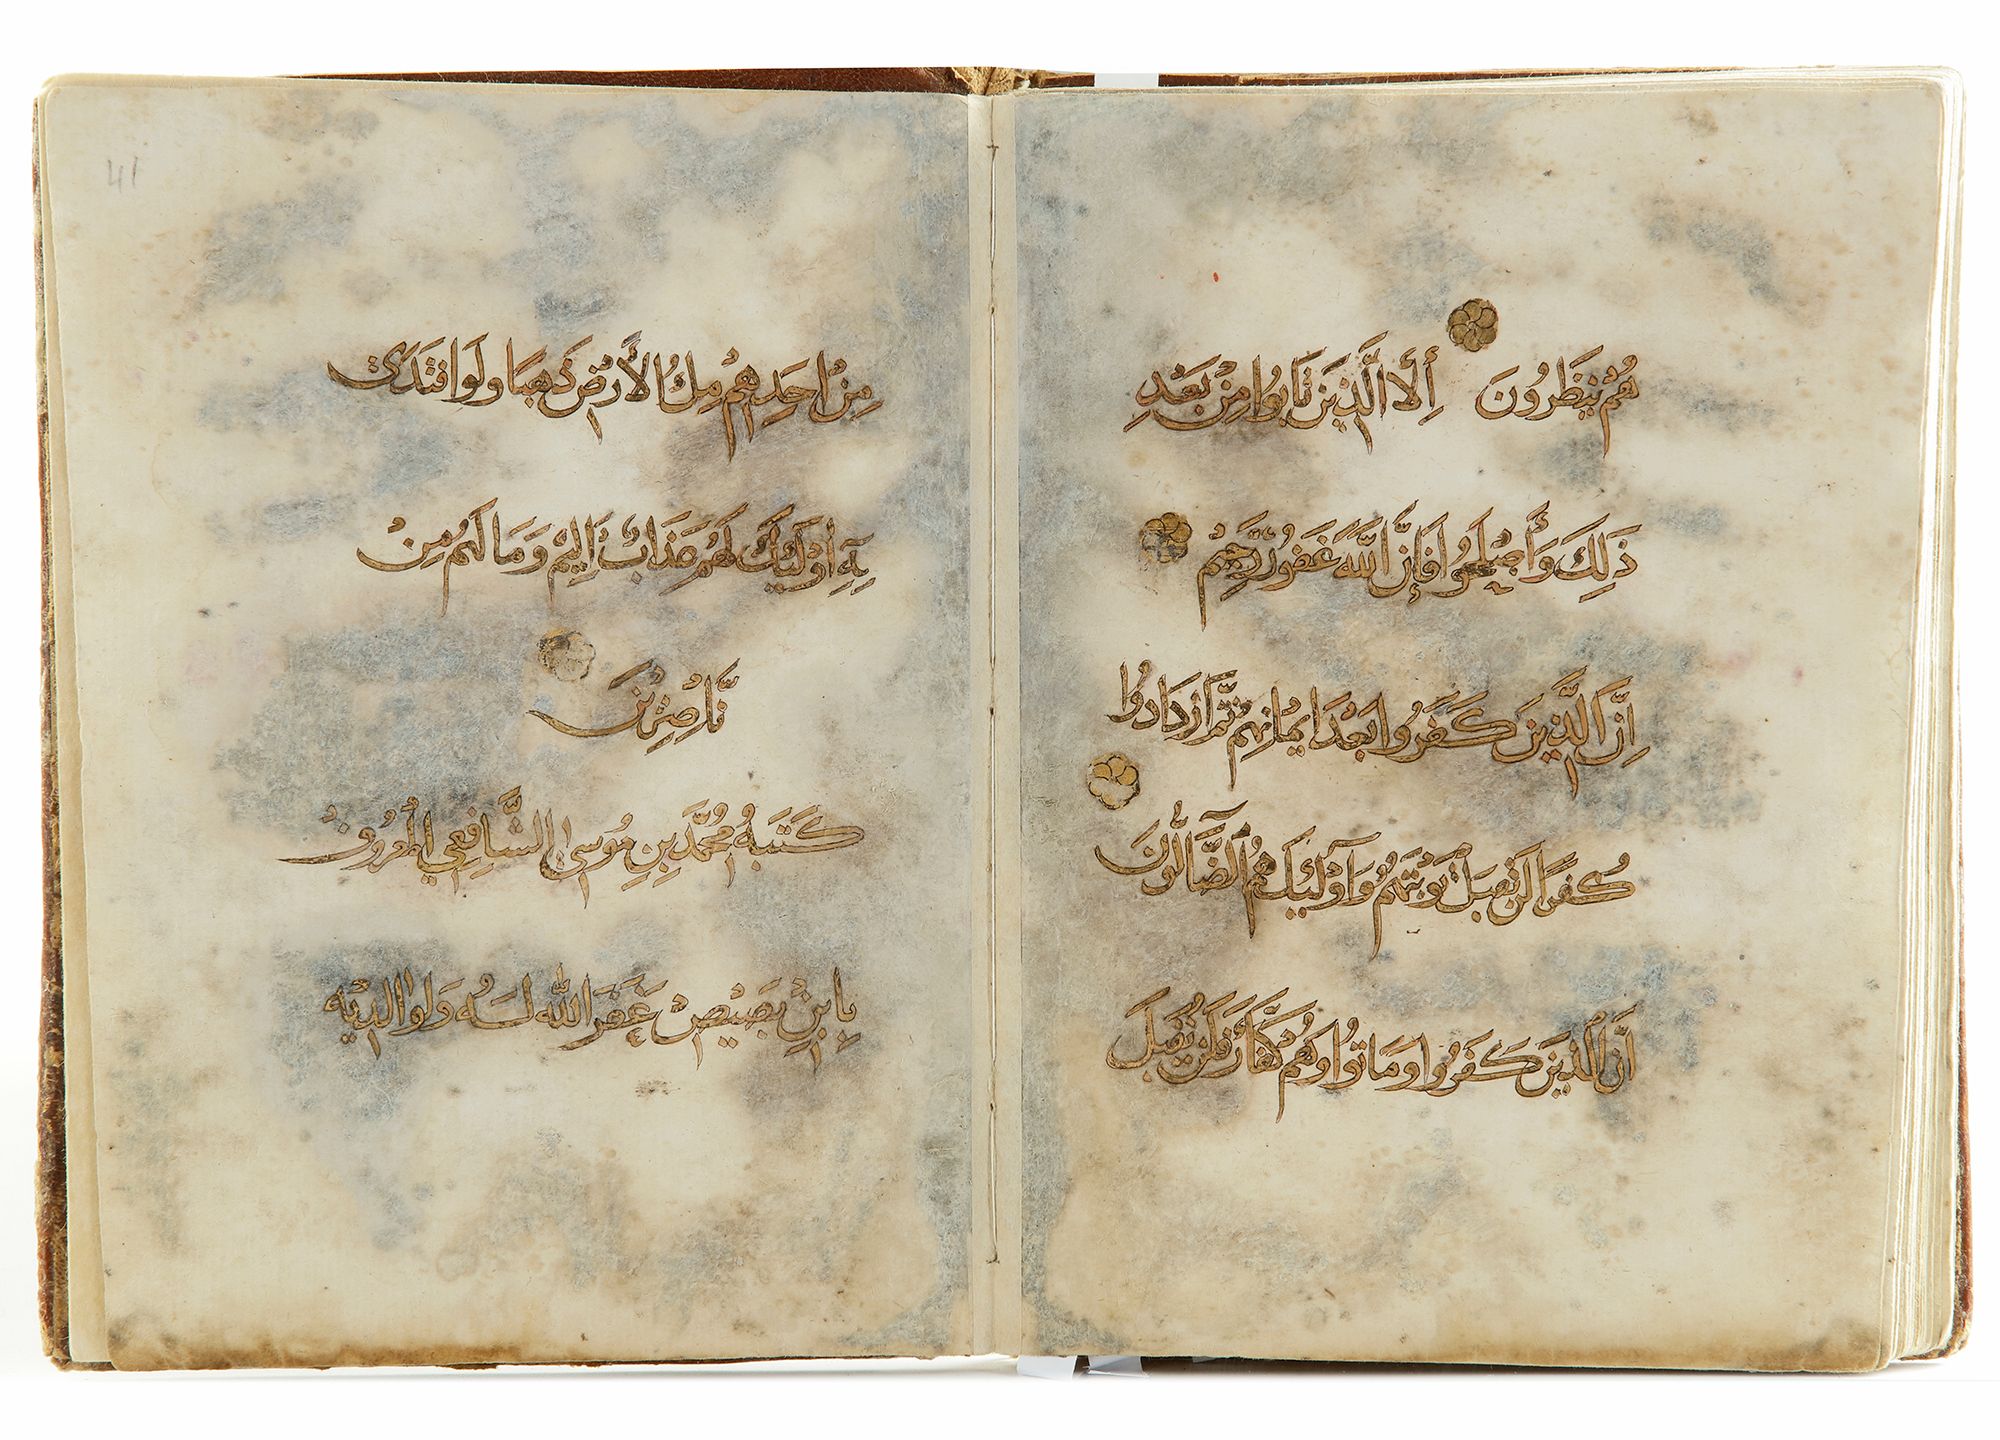 هُمْ يُنظَرُونَ إِلَّا الَّذِينَ تَابُوا مِنْ بَعْدِ
ذَلِكَ وَأَصْلَحُوا فَإِنَّ اللَّهَ غَفُورٌ رَّحِيمٌ
إِنَّ الَّذِينَ كَفَرُوا بَعْدَ إِيمَانِهِمْ ثُمَّ ازْدَادُوا
كُفْرًا لَنْ تُقْبَلَ تَوْبَتُهُمْ وَأُولَئِكَ هُمُ الضَّالُّونَ
إِنَّ الَّذِينَ كَفَرُوا وَمَاتُوا وَهُمْ كُفَّارٌ فَلَنْ يُقْبَلَ
41
مِنْ أَحَدِهِمْ مِلْءُ الْأَرْضِ ذَهَبًا وَلَوِ افْتَدَى
بِهِ أُولَئِكَ لَهُمْ عَذَابٌ أَلِيمٌ وَمَا لَهُمْ مِنْ
نَّاصِرِينَ
كَتَبَهُ مُحَمَّدُ بْنُ مُوسَى الشَّافِعِي الْمَعْرُوفُ
بِابْنِ بُصَيْصٍ غَفَرَ اللَّهُ لَهُ وَلِوَالِدَيْهِ